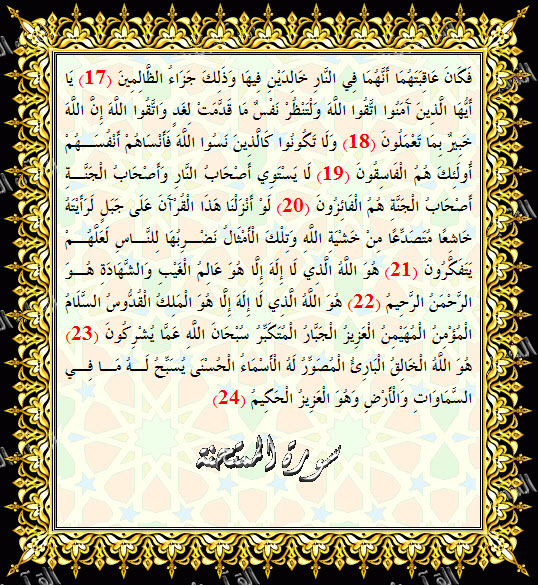 فَكَانَ عَاقِبَتَهُمَا أَنَّهُمَا فِي النَّارِ خَالِدَيْنِ فِيهَا وَذَلِكَ جَزَاءُ الظَّالِمِينَ (17) يَا
أَيُّهَا الَّذِينَ آمَنُوا اتَّقُوا اللَّهَ وَلْتَنْظُرْ نَفْسٌ مَا قَدَّمَتْ لِغَدٍ وَاتَّقُوا اللَّهَ إِنَّ اللَّهَ
خَبِيرٌ بِمَا تَعْمَلُونَ (18) وَلَا تَكُونُوا كَالَّذِينَ نَسُوا اللَّهَ فَأَنْسَاهُمْ أَنْفُسَـــهُمْ
أُولَئِكَ هُمُ الْفَاسِقُونَ (19) لَا يَسْتَوِي أَصْحَابُ النَّارِ وَأَصْحَابُ الْجَنَّـــةِ
أَصْحَابُ الْجَنَّةِ هُمُ الْفَائِزُونَ (20) لَوْ أَنْزَلْنَا هَذَا الْقُرْآنَ عَلَى جَبَلٍ لَرَأَيْتَهُ
خَاشِعًا مُتَصَدِّعًا مِنْ خَشْيَةِ اللَّهِ وَتِلْكَ الْأَمْثَالُ نَضْـرِبُهَا لِلنَّـاسِ لَعَلَّهُـــمْ
يَتَفَكَّرُونَ (21) هُوَ اللَّهُ الَّذِي لَا إِلَهَ إِلَّا هُوَ عَالِمُ الْغَيْبِ وَالشَّهَادَةِ هُـــوَ
الرَّحْمَنُ الرَّحِيمُ (22) هُوَ اللَّهُ الَّذِي لَا إِلَهَ إِلَّا هُوَ الْمَلِكُ الْقُدُّوسُ السَّلَامُ
الْمُؤْمِنُ الْمُهَيْمِنُ الْعَزِيزُ الْجَبَّارُ الْمُتَكَبِّرُ سُبْحَانَ اللَّهِ عَمَّا يُشْرِكُونَ (23)
هُوَ اللَّهُ الْخَالِقُ الْبَارِئُ الْمُصَوِّرُ لَهُ الْأَسْمَاءُ الْحُسْنَى يُسَبِّحُ لَـــهُ مَـــا فِـــي
السَّمَاوَاتِ وَالْأَرْضِ وَهُوَ الْعَزِيزُ الْحَكِيمُ (24)
سورة الممتحنة